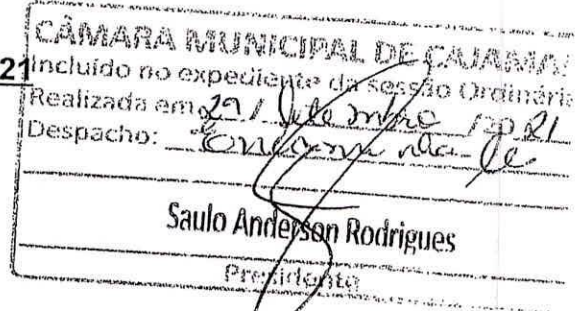 CÂMARA MUNICIPAL DE CAJAMA
21
Incluído no expediente da sessão Ordinária
Realizada em 29 / Setembro / 20 21
Despacho: Encaminha-se
Saulo Anderson Rodrigues
Presidente